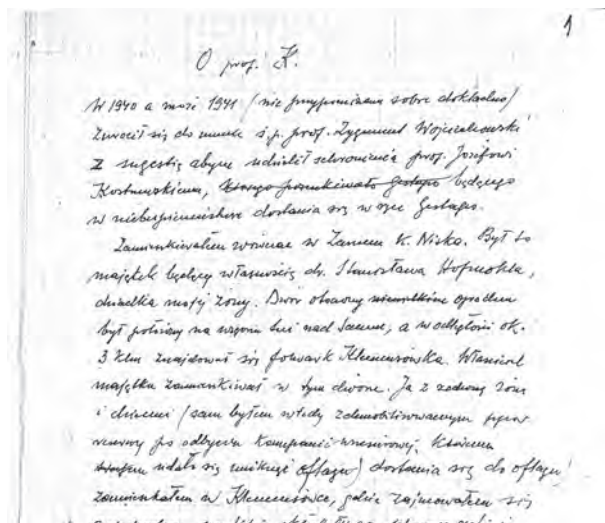 1
O prof. K.
W 1940 a może 1941 (nie przypominam sobie dokładnie)
zwrócił się do mnie ś.p. prof. Zygmunt Wojciechowski
z sugestią abym udzielił schronienia prof. Józefowi
Kostrzewskiemu, którego poszukiwało Gestapo będącego
w niebezpieczeństwie dostania się w ręce Gestapo.
Zamieszkiwałem wówczas w Zarzeczu k. Niska. Był to
majątek będący własnością dr. Stanisława
dziadka mojej żony. Dwór otoczony niewielkim ogrodem
był położony na wsi nad Sanem, a w odległości ok.
3 klm znajdował się folwark Klemensówka. Właściciel
majątku zamieszkiwał w tym dworze. Ja z rodziną żoną
i dziećmi (sam byłem wtedy zdemobilizowanym
rezerwy po odbyciu kampanii wrześniowej,
udało się uniknąć oflagu) dostania się do oflagu)
zamieszkałem w Klemensówce, gdzie zajmowałem się